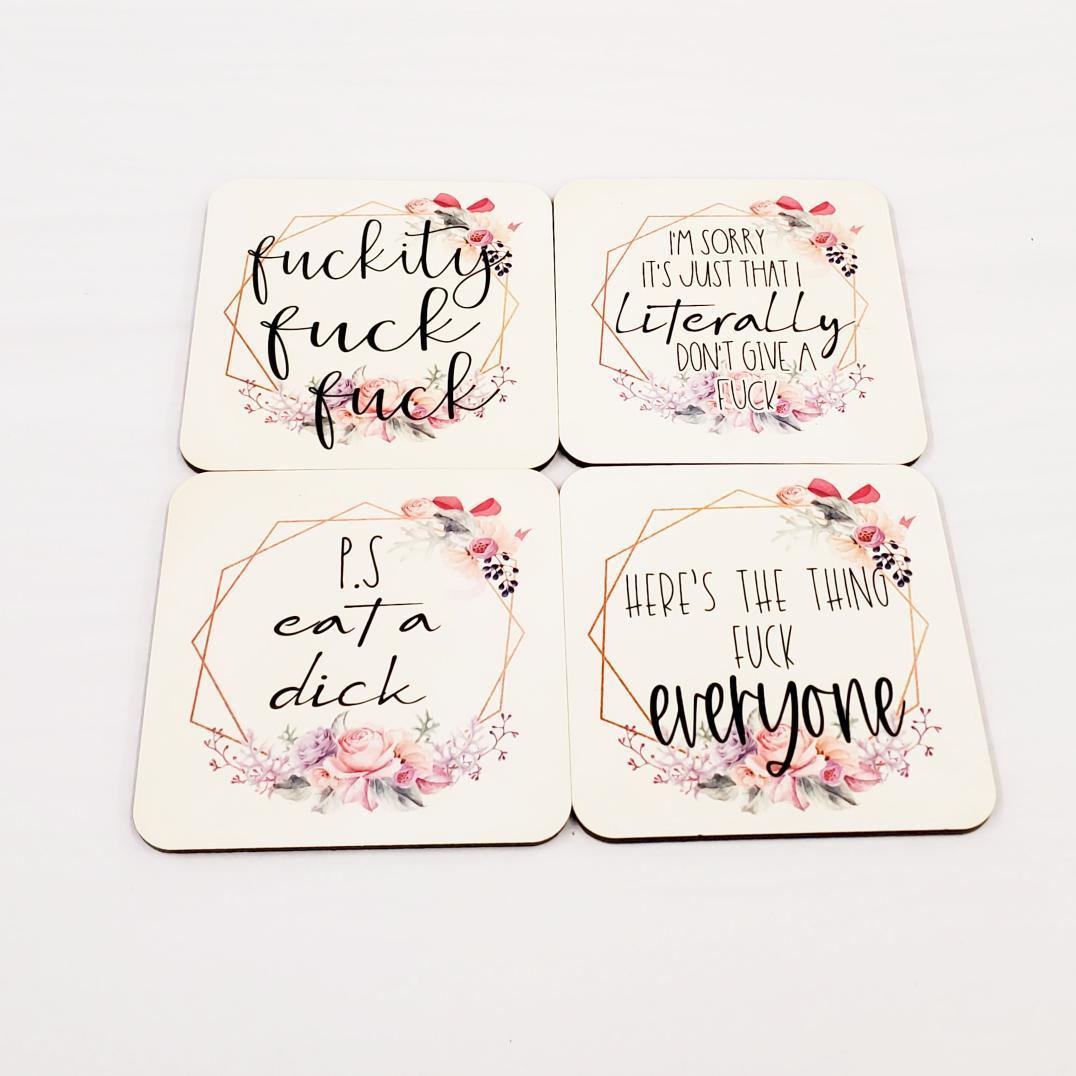 fuckity
fuck
fuck
I'M SORRY
IT'S JUST THAT I
literally
DON'T GIVE A
FUCK
P.S
eat a
dick
HERE'S THE THING
FUCK
everyone